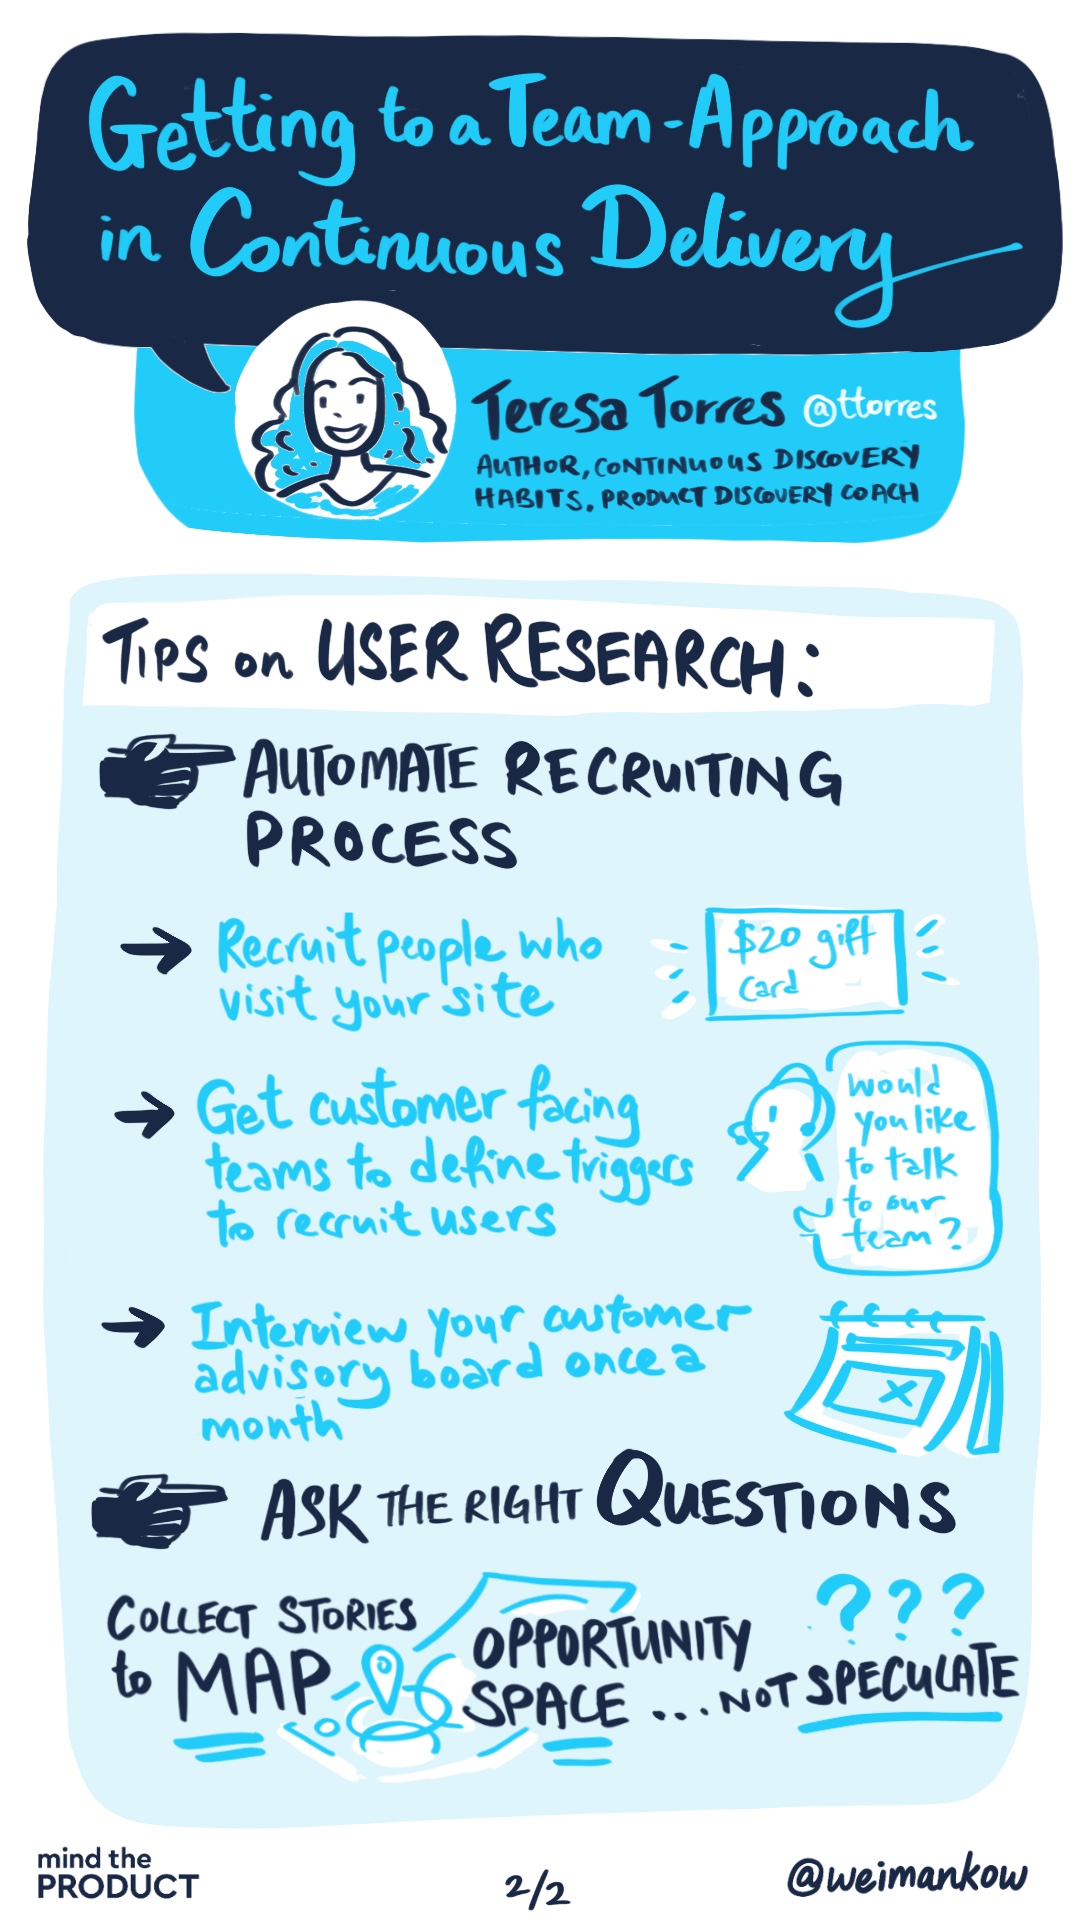 Getting to a Team-Approach
in Continuous Delivery
Teresa Torres @ttorres
AUTHOR, CONTINUOUS DISCOVERY
HABITS, PRODUCT DISCOVERY COACH
TIPS on USER RESEARCH:
AUTOMATE RECRUITING
PROCESS
Recruit people who
visit your site
$20 gift
card
Get customer facing
teams to define triggers
to recruit users
would
you like
to talk
to our
team?
Interview your customer
advisory board once a
month
ASK THE RIGHT QUESTIONS
COLLECT STORIES
to MAP
OPPORTUNITY
SPACE ... NOT SPECULATE
???
mind the
PRODUCT
2/2
@weimankow